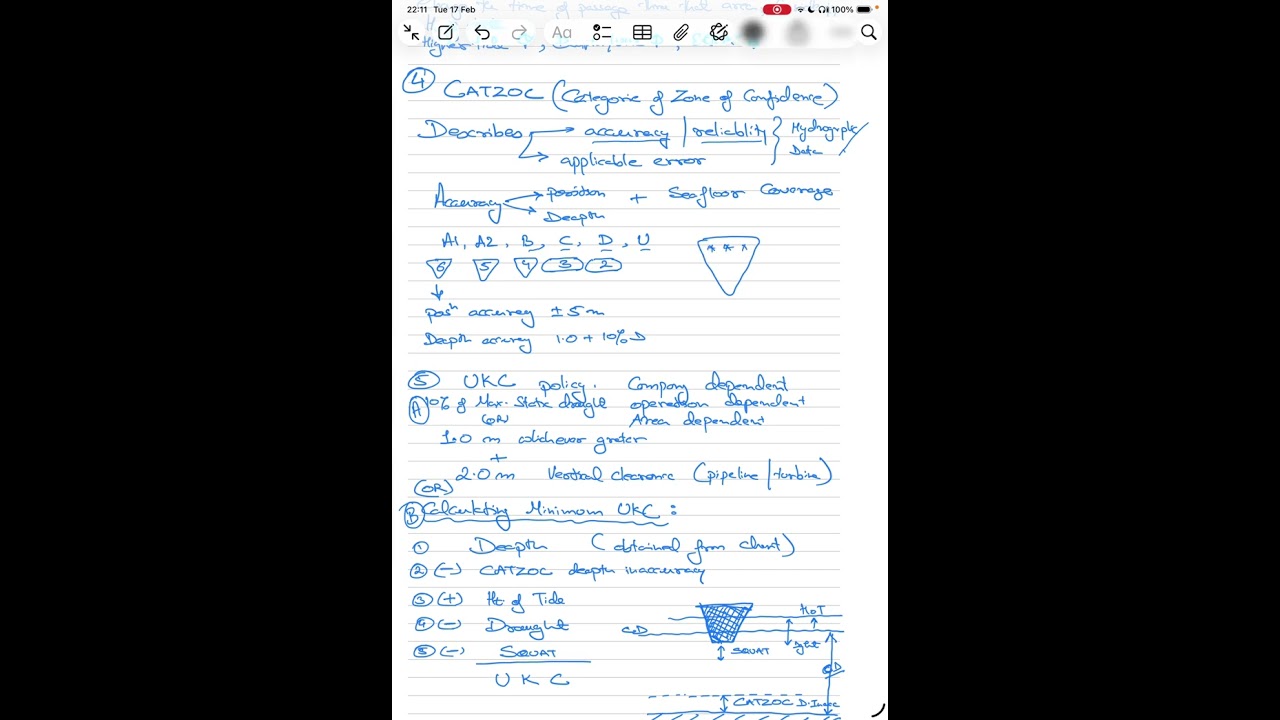 22:11 Tue 17 Feb
100%
the time of passage
Aa
④ CATZOC (Categoric of Zone of Confidence)
Describes → accuracy | reliablity } Hydrographic
→ applicable error Data
Accuracy → Position + Seafloor Coverage
→ Deapth
A1, A2, B, C, D, U
6 5 4 3 2
* * *
posⁿ accuracy ± 5 m
Deapth accuracy 1.0 + 10% D
⑤ UKC policy. Company dependent
Ⓐ 10% of Max. Static draught operation dependent
(OR) Area dependent
1.0 m whichever greater
+
2.0 m Vertical clearance (pipeline | turbine)
(OR)
Ⓑ Calculating Minimum UKC :
① Deapth (obtained from chart)
② (-) CATZOC deapth inaccuracy
③ (+) Ht of Tide
④ (-) Draught
⑤ (-) SQUAT
U K C
HoT
CD
SQUAT
CD
CATZOC D. Inacc